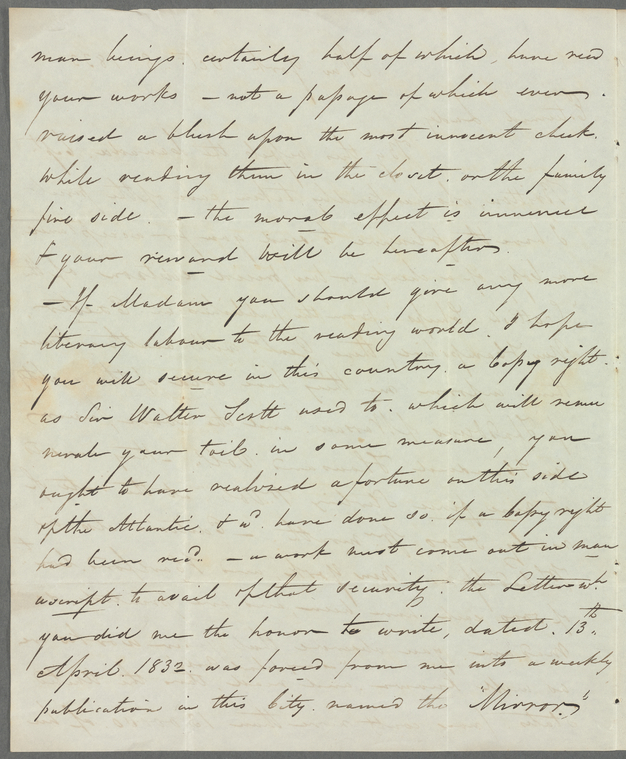 man beings. certainly half of which, have read
your works – not a passage of which ever.
raised a blush upon the most innocent cheek.
while reading them in the closet. or the family
fire side. – the moral effect is immense
& your reward will be hereafter.
– If Madam you should give any more
literary labour to the reading world. I hope
you will secure in this country. a Copy right.
as Sir Walter Scott used to. which will remu
nerate your toil. in some measure, you
ought to have realized a fortune on this side
of the Atlantic. & wd. have done so. if a Copy right
had been recd. – a work must come out in man
uscript. to avail of that security. the Letter wh.
you did me the honor to write, dated. 13th.
April. 1832. was forced from me into a weekly
publication in this City. named the "Mirror"